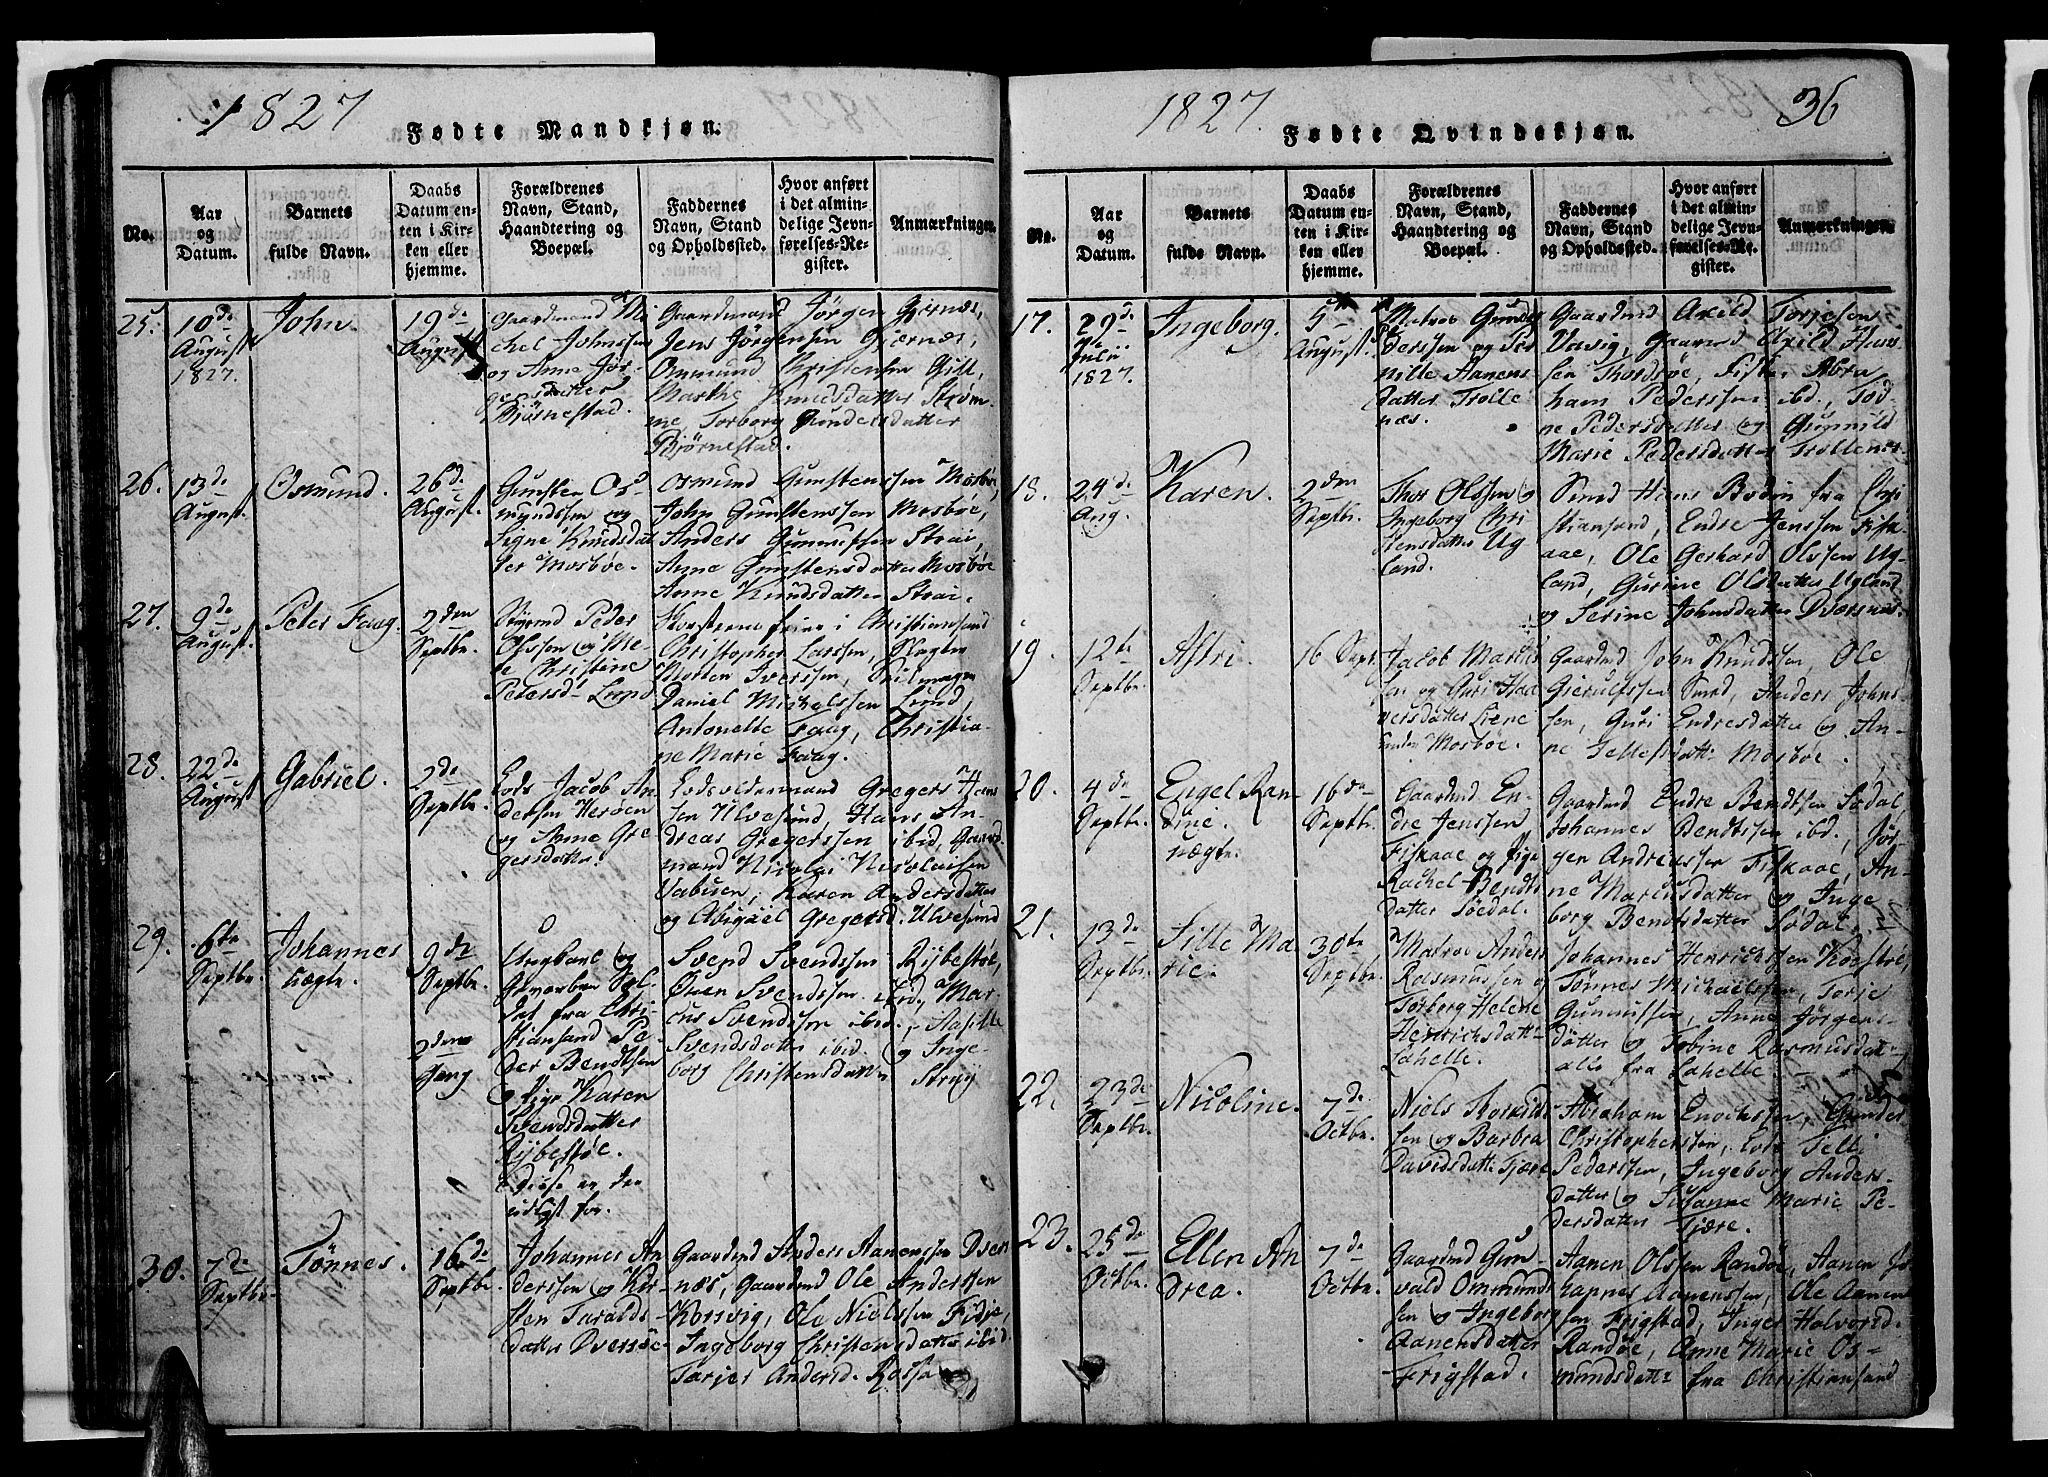 1827
Fødte Mandkjøn.
No.
Aar
og
Datum.
Barnets
fulde Navn.
Daabs
Datum en-
ten i Kir-
ken eller
hjemme.
Forældrenes
Navn, Stand,
Haandtering og
Boepæl.
Faddernes
Navn, Stand
og Opholdssted.
Hvor anført
i det almin-
delige Jevn-
førelses-Re-
gister.
Anmærkninger.
25.
10de
August
1827.
John.
19de
August
Gaardmand Mi
chel Johnssen
og Anne Jør
gensdatter
Bjørnestad.
Gaardmand Jørgen Gjernæs,
Jens Jørgensen Gjernæs,
Ommund Christensen
Marthe Knudsdatter Strøm
me, Torborg Gundersdatter
Bjørnestad.
26.
13de
August.
Osmund.
26d.
August.
Gunsten Os
mundssen og
Signe Knudsdat
ter Mosbøe.
Osmund Gunstenssen Mosbøe,
John Gunstenssen Mosbøe,
Anders Gunnufsen Strai,
Anne Gunstensdatter Mosbøe
Anne Knudsdatter Strai.
27.
9de
August.
Peter Faag.
2den
Septbr.
Peder
Olssen og
Christine
Petersd. Lund
Skorsteensfeier i Christiansand
Christopher Larssen,
Morten Iverssen,
Daniel Michelssen Lund,
Antonette Faag, Christia-
ne Marie Faag.
28.
22de
August
Gabriel.
2de
Septbr.
Lods Jacob An
dersen Herøen
og Anne Gre
gersdatter.
Lodsoldermand Gregers Han
sen Ulvesund, Hans An
dreas Gregerssen ibid, Gaard
mand Nicolai Nicolaisen
Vabuen, Karen Andersdatter
og Abigael Gregersd. Ulvesund
29.
6te
Septbr.
Johannes
uægte.
9de
Septbr.
2den
Gang
Ungkarl og
Sol
dat fra Chri
stiansand Pe
der Bendtsen
og Pige Karen
Svendsdatter
Rybestøe.
Disse er den
udlgt for.
Svend Svendssen Rybestøe,
Oven Svendssen ibid, Mar
cus Svendssen ibid., Aasille
Svendsdatter ibid. og Inge-
borg Christensdatter Stray
30.
7de
Septbr.
Tønnes.
16de
Septbr.
Johannes An
derssen og Kir
sten Taralds
datter Dversøe
Gaardmd Anders Aanenssen Dvers
næs, Gaardmd Ole Andersten
Korsvig, Ole Nielssen Fidje,
Ingeborg Christensdatter ibid.
Tarjer Andersd.
1827.
36
Fødte Qvindekjøn.
No.
Aar
og
Datum.
Barnets
fulde Navn.
Daabs
Datum en-
ten i Kir-
ken eller
hjemme.
Forældrenes
Navn, Stand,
Haandtering og
Boepæl.
Faddernes
Navn, Stand
og Opholdssted.
Hvor anført
i det almin-
delige Jevn-
førelses-Re-
gister.
Anmærkninger.
17.
29de
Julii
1827.
Ingeborg.
5te
August.
Matros Gun
derssen og Per
nille Aanens
datter Trolle
næs.
Gaardmd Axild Torjesen
Vavig, Gaardmd Axild Han
sen Thorsøe, Abra
ham Pederssen ibd.,
ne Pedersdatter og Gunnild
Marie Pedersdatter Trollenæs.
18.
24de
Aug.
Karen.
2den
Septbr.
Thor Olssen og
Ingeborg Chri
stensdatter Ug
land.
Smed Hans Bodin fra Chri
stiansand, Endre Jenssen Fisk
aae, Ole Gerhard Olssen Ug
land, Gurine Olsdatter Ugland
og Serine Johnsdatter Dversnes.
19.
12te
Septbr.
Astri.
16 Septr.
Jacob Marcus
sen og Guri Haa
versdatter Liene
under Mosbøe.
Gaardmd John Knudssen, Ole
Gierulfssen Smed, Anders Johns
sen, Guri Endresdatter og An-
ne Tellefsdatt. Mosbøe.
20.
4de
Septbr.
Engel Ran-
dine.
uægte.
16de
Septbr.
Gaardmd En
dre Jenssen
Fiskaae og Pige
Rachel Bendts
datter Søedal.
Gaardmd Endre Bendtsen Sødal,
Johannes Bendtssen ibd., Jør
gen Andreassen Fiskaae, An-
ne Marcusdatter og Inge
borg Bendtsdatter Sødal.
21.
13de
Septbr.
Sille Ma
rie.
30te
Septbr.
Matros Anders
Rasmussen og
Torborg Helene
Henrichsdatt.
Lahelle.
Johannes Henrichssen Kogstøe,
Tønnes Michaelssen, Torje
Gunnufsen, Anne Jørgens
datter og Tobine Rasmusdat.
alle fra Lahelle.
22.
23de
Septbr.
Nicoline.
7de
Octbr.
Niels
sen og Barbra
Davidsdatt. Tjære
Abraham Enochssen, Gunder
Christopherssen, Lods Telli
Pederssen, Ingeborg Anders
datter og Susanne Marie Pe-
dersdatter Tjære.
23.
25de
Octbr.
Ellen An
drea.
7de
Octbr.
Gaardmd Gun
vald Ommunds
sen og Ingeborg
Aanensdatter
Frigstad.
Aanen Olssen Randøe, Aanen Jo
hannes Aanenssen, Ole Aanen
sen Frigstad, Inger Halvorsd.
Randøe, Anne Marie Os-
mundsdatt. fra Christiansand